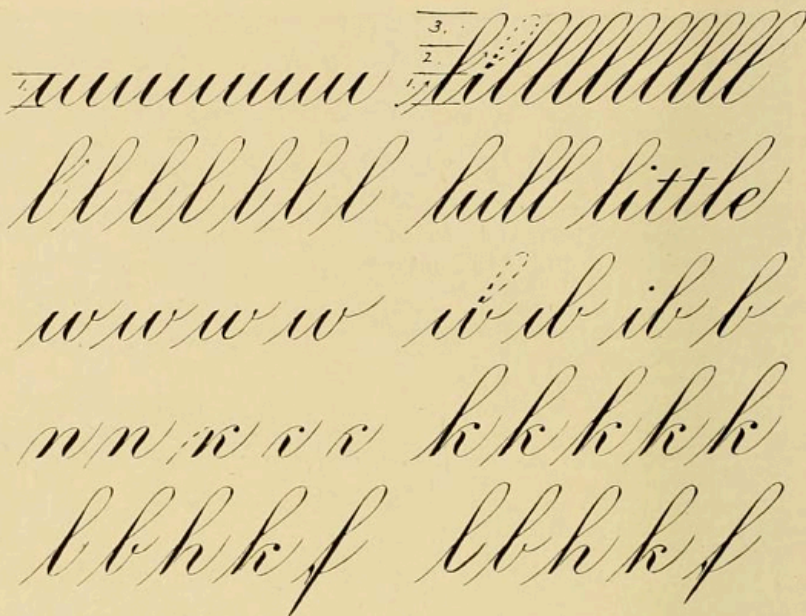 1. uuuuuuu 3. 2. 1. lilllllllll
l l l l l l l lull little
w w w w w ıb ib b
n n κ c c k k k k k
l b h k f l b h k f